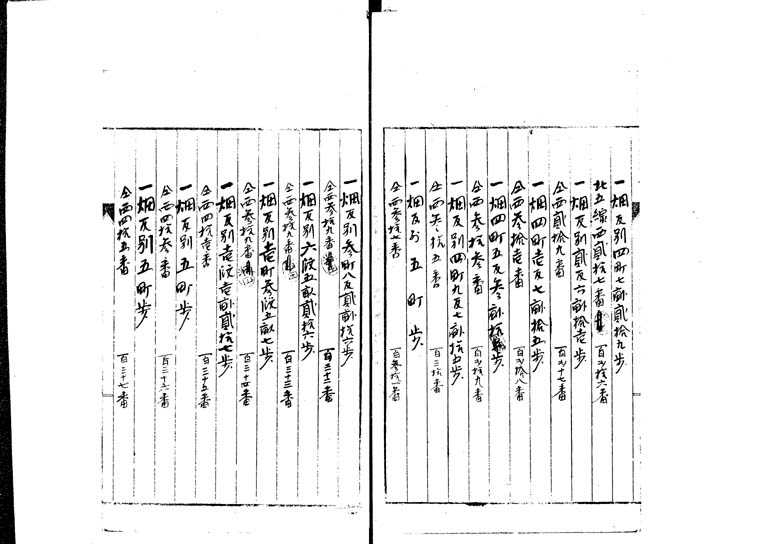 一畑反別四町七畝貳拾九歩
北五線西貳拾七番 百廿六番
一畑反別貳反六畝拾壱歩
仝西貳拾九番 百廿七番
一畑四町壱反七畝拾五歩
仝西参拾壱番 百貳拾八番
一畑四町五反参畝拾歩
仝西参拾参番 百廿九番
一畑反別四町九反七畝拾五歩
仝西参拾五番 百三拾番
一畑反別五町歩
仝西参拾七番 百参拾一番
一畑反別参町八反貳畝拾六歩
仝西参拾九番 百三十二番
一畑反別六段五畝貳拾六歩
仝西参拾九番 百三十三番
一畑反別壱町参段五畝七歩
仝西参拾九番 百三十四番
一畑反別壱段壱畝貳拾七歩
仝西四拾壱番 百三十五番
一畑反別五町歩
仝西四拾参番 百三十六番
一畑反別五町歩
仝西四拾五番 百三十七番